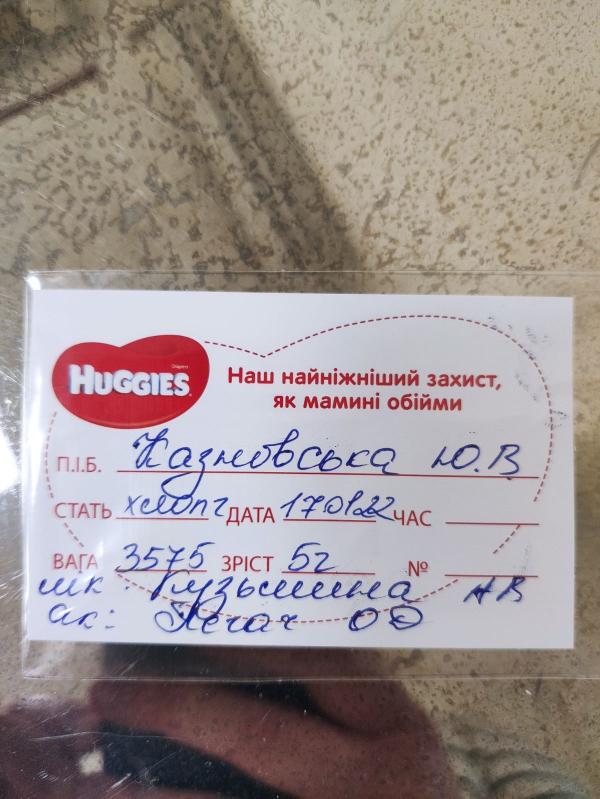 HUGGIES
Наш найніжніший захист,
як мамині обійми
П.І.Б. Казновська Ю.В
СТАТЬ хлопч ДАТА 17.01.22 ЧАС
ВАГА 3575 ЗРІСТ 52 №
Кузьмина АВ
ак: ОД